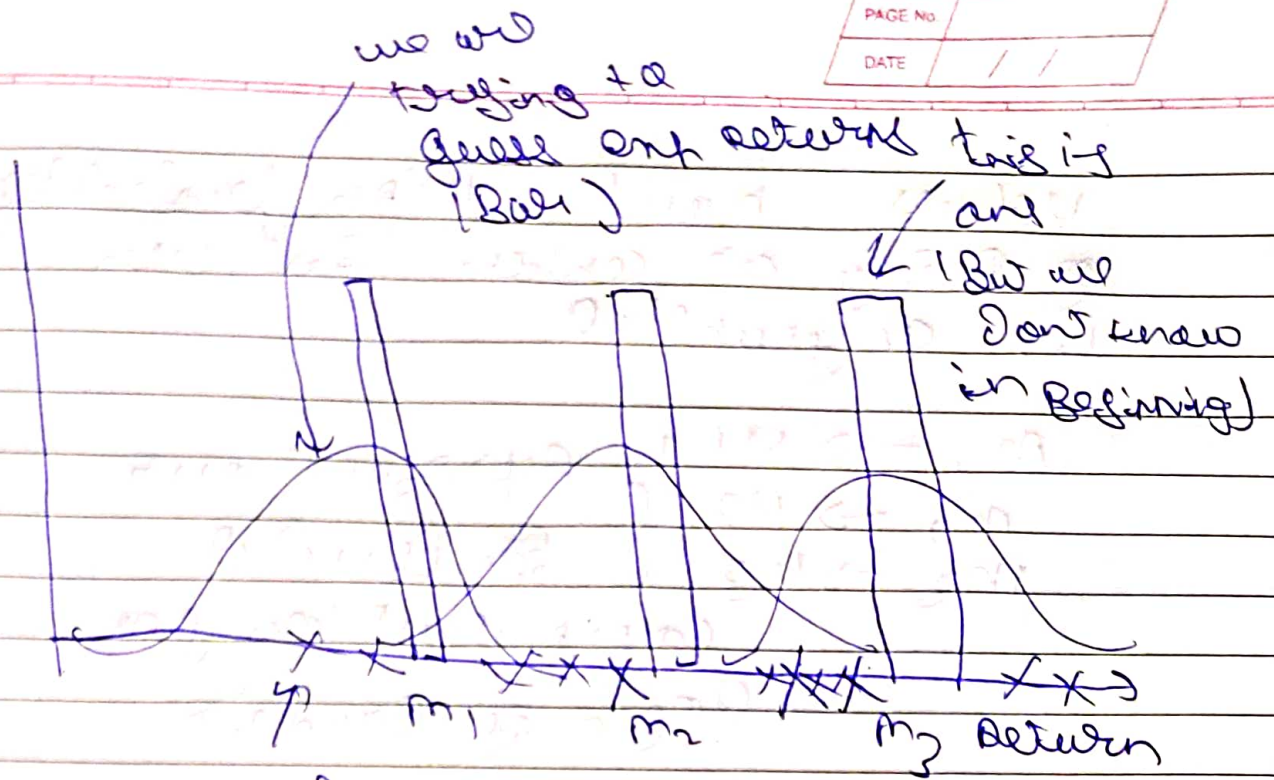 PAGE No.
DATE / /
we are
trying to
guess exp returns
(Bar)
this is
ans
(But we
Dont know
in Beginnig)
m1
m2
m3
Return